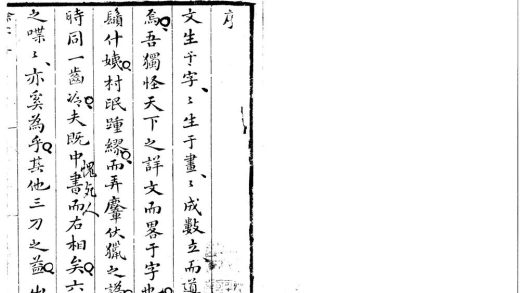 序
文生于字〻生于畫〻成數立而道
焉吾獨怪天下之詳文而畧于字也
村眠踵繆而弄麞伏獵之
時同一齒冷夫既中書而右相矣六
愧死人
之喋〻亦奚為乎其他三刀之益出